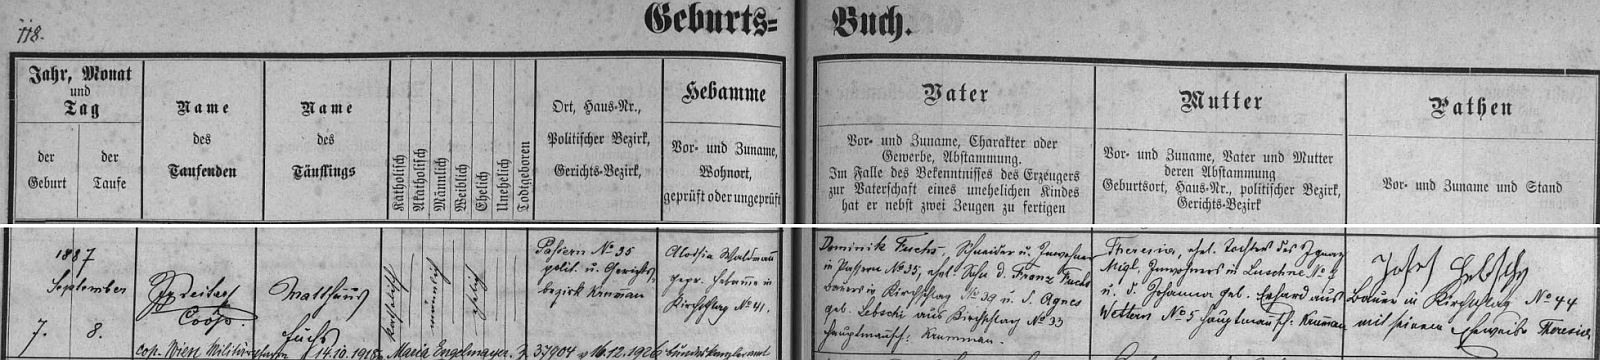 118.
Geburts=
Buch.
Jahr, Monat
und
Tag
der
Geburt
der
Taufe
Name
des
Taufenden
Name
des
Täuflings
Katholisch
Akatholisch
Männlich
Weiblich
Ehelich
Unehelich
Todtgeboren
Ort, Haus-Nr.,
Politischer Bezirk,
Gerichts-Bezirk,
Hebamme
Vor- und Zuname,
Wohnort,
geprüft oder ungeprüft
Vater
Vor- und Zuname, Charakter oder
Gewerbe, Abstammung.
Im Falle des Bekenntnisses des Erzeugers
zur Vaterschaft eines unehelichen Kindes
hat er nebst zwei Zeugen zu fertigen
Mutter
Vor- und Zuname, Vater und Mutter
deren Abstammung
Geburtsort, Haus-Nr., politischer Bezirk,
Gerichts-Bezirk
Pathen
Vor- und Zuname und Stand
1887
September
7. 8.
Coop.
Matthäus
Fuchs
katholisch
männlich
ehelich
Passern No 35
polit. u. Gerichts-
bezirk Krumau
Aloisia Waldmann
gepr. Hebamme in
Kirchschlag No 41.
Dominik Fuchs, Schneider u. Inwohner
in Passern No 35, ehel. Sohn d. Franz Fuchs
Bauers in Kirchschlag No 39 u. d. Agnes
geb. Lebschi aus Kirchschlag No 33
Hauptmannsch. Krumau.
Theresia, ehel. Tochter des Ignaz
Migl, Inwohners in Luschne No
u. d. Johanna geb. Erhard aus
Wettern No 5 Hauptmannsch. Krumau
Josef Lebschy
Bauer in Kirchschlag No 44
mit seinem Eheweibe Theresia
cop. Wien 14.10.1918 Maria Engelmayer. Z. 37904 v 16.12.1926 Bundeskanzleramt